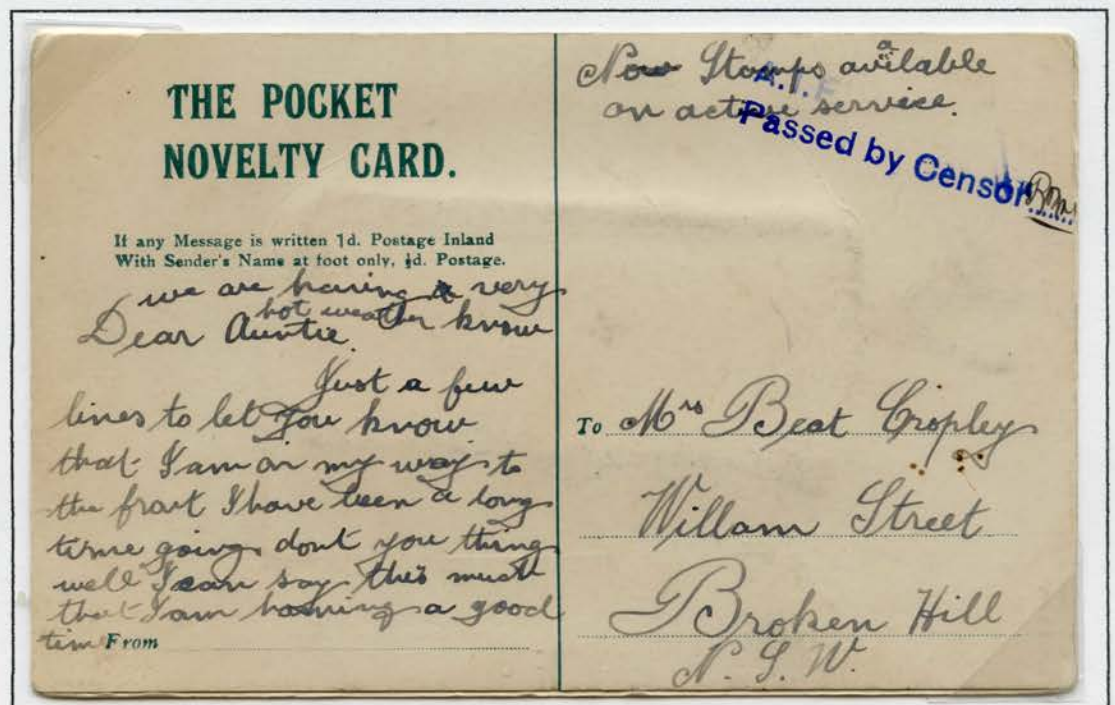 THE POCKET
NOVELTY CARD.
If any Message is written 1d. Postage Inland
With Sender's Name at foot only, ½d. Postage.
we are having a very
hot weather know
Dear Auntie
Just a few
lines to let you know
that I am on my way to
the front I have been a long
time going dont you thing
well I can say this much
that I am having a good
time From
Now Stamps available
on active service.
A.I.F
Passed by Censor
To Mrs Beat Cropley
Willam Street
Broken Hill
N. S. W.